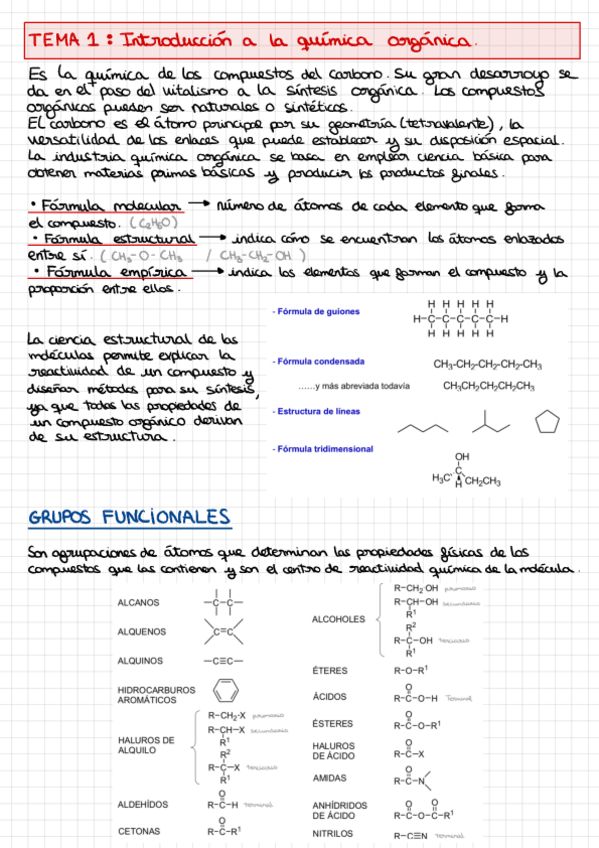 TEMA 1 : Introducción a la química orgánica.
Es la química de los compuestos del carbono. Su gran desarroyo se
da en el paso del vitalismo a la síntesis orgánica. Los compuestos
orgánicos pueden ser naturales o sintéticos.
El carbono es el átomo principal por su geometría (tetravalente), la
versatilidad de los enlaces que puede establecer y su disposición espacial.
La industria química orgánica se basa en emplear ciencia básica para
obtener materias primas básicas y producir los productos finales.
• Fórmula molecular → número de átomos de cada elemento que forma
el compuesto. (C₂H₆O)
• Fórmula estructural → indica cómo se encuentran los átomos enlazados
entre sí. (CH₃-O-CH₃ / CH₃-CH₂-OH)
• Fórmula empírica → indica los elementos que forman el compuesto y la
proporción entre ellos.
La ciencia estructural de las
moléculas permite explicar la
reactividad de un compuesto y
diseñar métodos para su síntesis,
ya que todas las propiedades de
un compuesto orgánico derivan
de su estructura.
- Fórmula de guiones
H H H H H
H-C-C-C-C-C-H
H H H H H
- Fórmula condensada
CH₃-CH₂-CH₂-CH₂-CH₃
......y más abreviada todavía
CH₃CH₂CH₂CH₂CH₃
- Estructura de líneas
- Fórmula tridimensional
OH
C
H₃C H CH₂CH₃
GRUPOS FUNCIONALES
Son agrupaciones de átomos que determinan las propiedades físicas de los
compuestos que las contienen y son el centro de reactividad química de la molécula.
ALCANOS
-C-C-
ALQUENOS
C=C
ALQUINOS
-C≡C-
HIDROCARBUROS
AROMÁTICOS
HALUROS DE
ALQUILO
R-CH₂-X primario
R-CH-X secundario
R¹
R²
R-C-X terciario
R¹
ALDEHÍDOS
O
R-C-H terminal
CETONAS
O
R-C-R¹
ALCOHOLES
R-CH₂OH primario
R-CH-OH secundario
R¹
R²
R-C-OH terciario
R¹
ÉTERES
R-O-R¹
ÁCIDOS
O
R-C-O-H Terminal
ÉSTERES
O
R-C-O-R¹
HALUROS
DE ÁCIDO
O
R-C-X
AMIDAS
O
R-C-N
ANHÍDRIDOS
DE ÁCIDO
O O
R-C-O-C-R¹
NITRILOS
R-C≡N Terminal